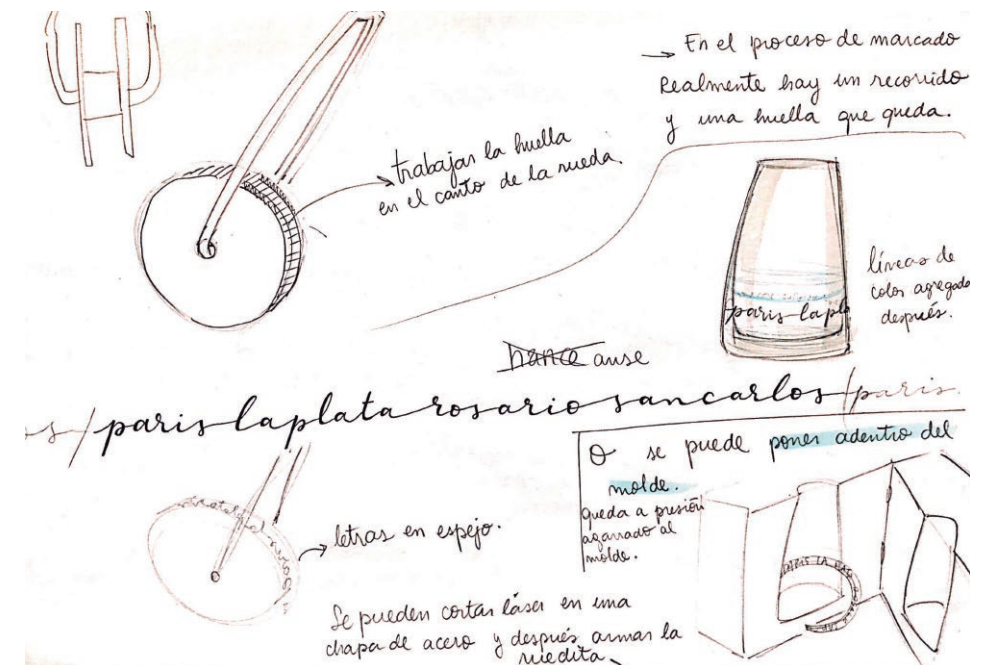 → En el proceso de marcado
Realmente hay un recorrido
y una huella que queda.
trabajar la huella
en el canto de la rueda.
líneas de
color agregado
después.
paris-lapla
ause
os/paris-laplata-rosario-sancarlos/paris.
letras en espejo.
O se puede poner adentro del
molde.
queda a presión
agarrado al
molde.
PARIS LA
Se pueden cortar láser en una
chapa de acero y después armar la
ruedita